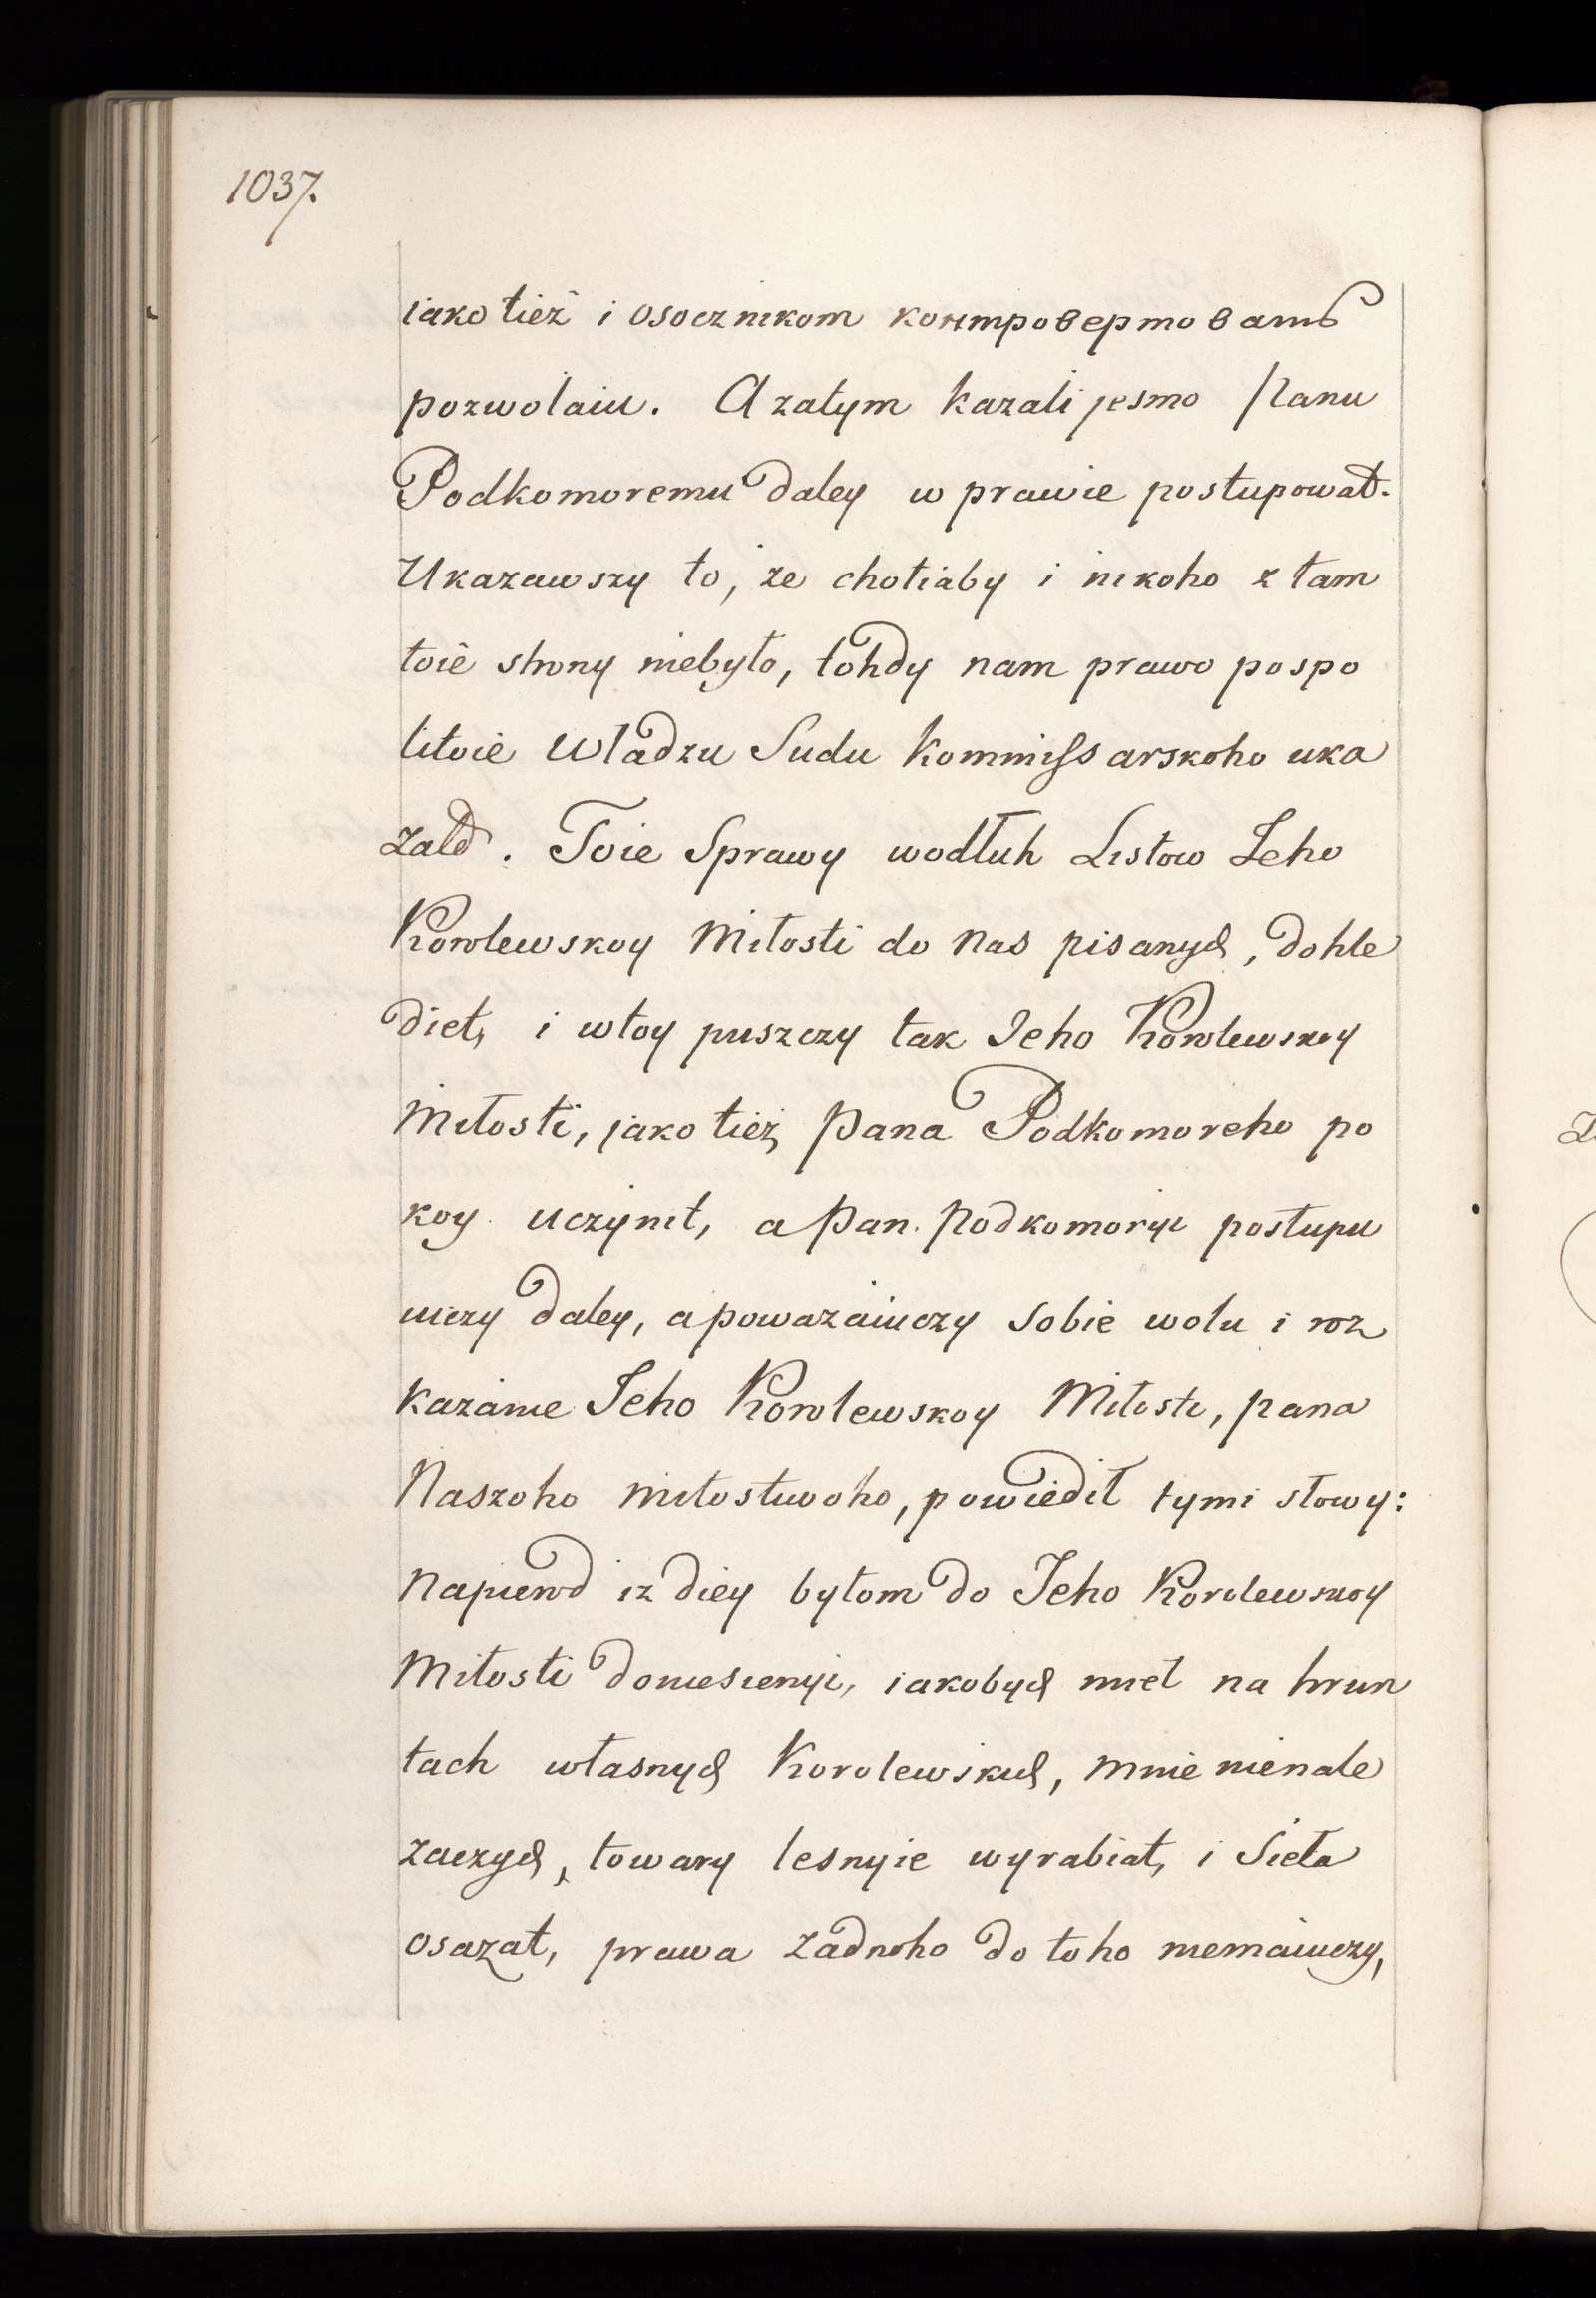 1037.
iako tież i osocznikom контровертовать
pozwolaiu. A zatym kazali jesmo Panu
Podkomoremu daley w prawie postupowat.
Ukazawszy to, że chotiaby i nikoho z tam
toie strony niebyło, tohdy nam prawo pospo
litoie Władzu Sudu Kommissarskoho uka
zało. Toie Sprawy wodłuh Listow Jeho
Korolewskoy Miłosti do nas pisanych, dohle
diet, i wtoy puszczy tak Jeho Korolewskoy
Miłosti, jako tież Pana Podkomoreho po
koy uczynit, a Pan Podkomoryi postupu
iuczy daley, a poważaiuczy Sobie wolu i roz
kazanie Jeho Korolewskoy Miłosti, pana
Naszoho miłostiwoho, powiedił tymi słowy:
Napierod iz diey byłom do Jeho Korolewskoy
Miłosti doniesienyi, iakobych miel na hrun
tach własnych Korolewskich, mnie nienale
żaczych, towary lesnyie wyrabiat, i Sieła
osażat, prawa żadnoho do toho niemaiuczy,